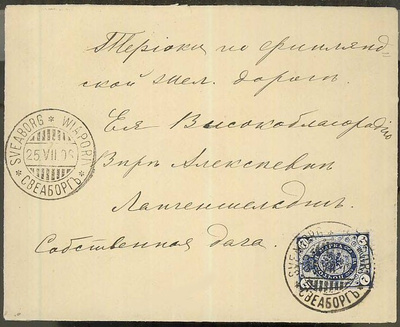 Терiоки по финлянд-
ской жел. дорогѣ.
Ея Высокоблагородiю
Вѣрѣ Алексѣевнѣ
Лангеншельдъ.
Собственная дача.
SVEABORG * WIAPORI *
25.VII.06
СВЕАБОРГЪ
SVEABORG
СВЕАБОРГЪ
7